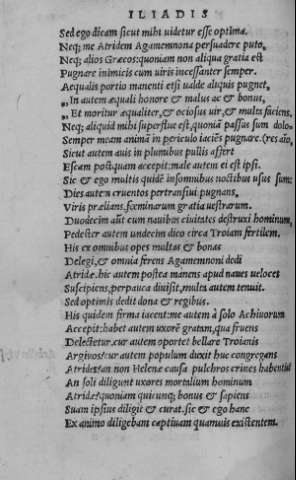 ILIADIS
Sed ego dicam sicut mihi uidetur esse optima.
Neq; me Atridem Agamemnona persuadere puto,
Neq; alios Græcos: quoniam non aliqua gratia est
Pugnare inimicis cum uiris incessanter semper.
Aequalis portio manenti etsi ualde aliquis pugnet,
„ In autem æquali honore & malus ac & bonus,
„ Et moritur æqualiter, & ociosus uir, & multa faciens.
Neq; aliquid mihi superfluè est, quoniã passus sum dolo=
Semper meam animã in periculo iaciẽs pugnare. (res aĩo,
Sicut autem auis in plumibus pullis affert
Escam postquam accepit: male autem ei est ipsi.
Sic & ego multis quidẽ insomnibus noctibus usus sum:
Dies autem cruentos pertransiui pugnans,
Viris prælians, fœminarum gratia uestrarum.
Duodecim aũt cum nauibus ciuitates destruxi hominum,
Pedester autem undecim dico circa Troiam fertilem.
His ex omnibus opes multas & bonas
Delegi, & omnia ferens Agamemnoni dedi
Atridæ. hic autem postea manens apud naues ueloces
Suscipiens, perpauca diuisit, multa autem tenuit.
Sed optimis dedit dona & regibus.
His quidem firma iacent: me autem à solo Achiuorum
Accepit: habet autem uxorẽ gratam, qua fruens
Delectetur. cur autem oportet bellare Troianis
Argiuos? cur autem populum duxit huc congregans
Atrides? an non Helenæ causa pulchros crines habentis?
An soli diligunt uxores mortalium hominum
Atridæ? quoniam quicunq; bonus & sapiens
Suam ipsius diligit & curat. sic & ego hanc
Ex animo diligebam captiuam quamuis existentem.